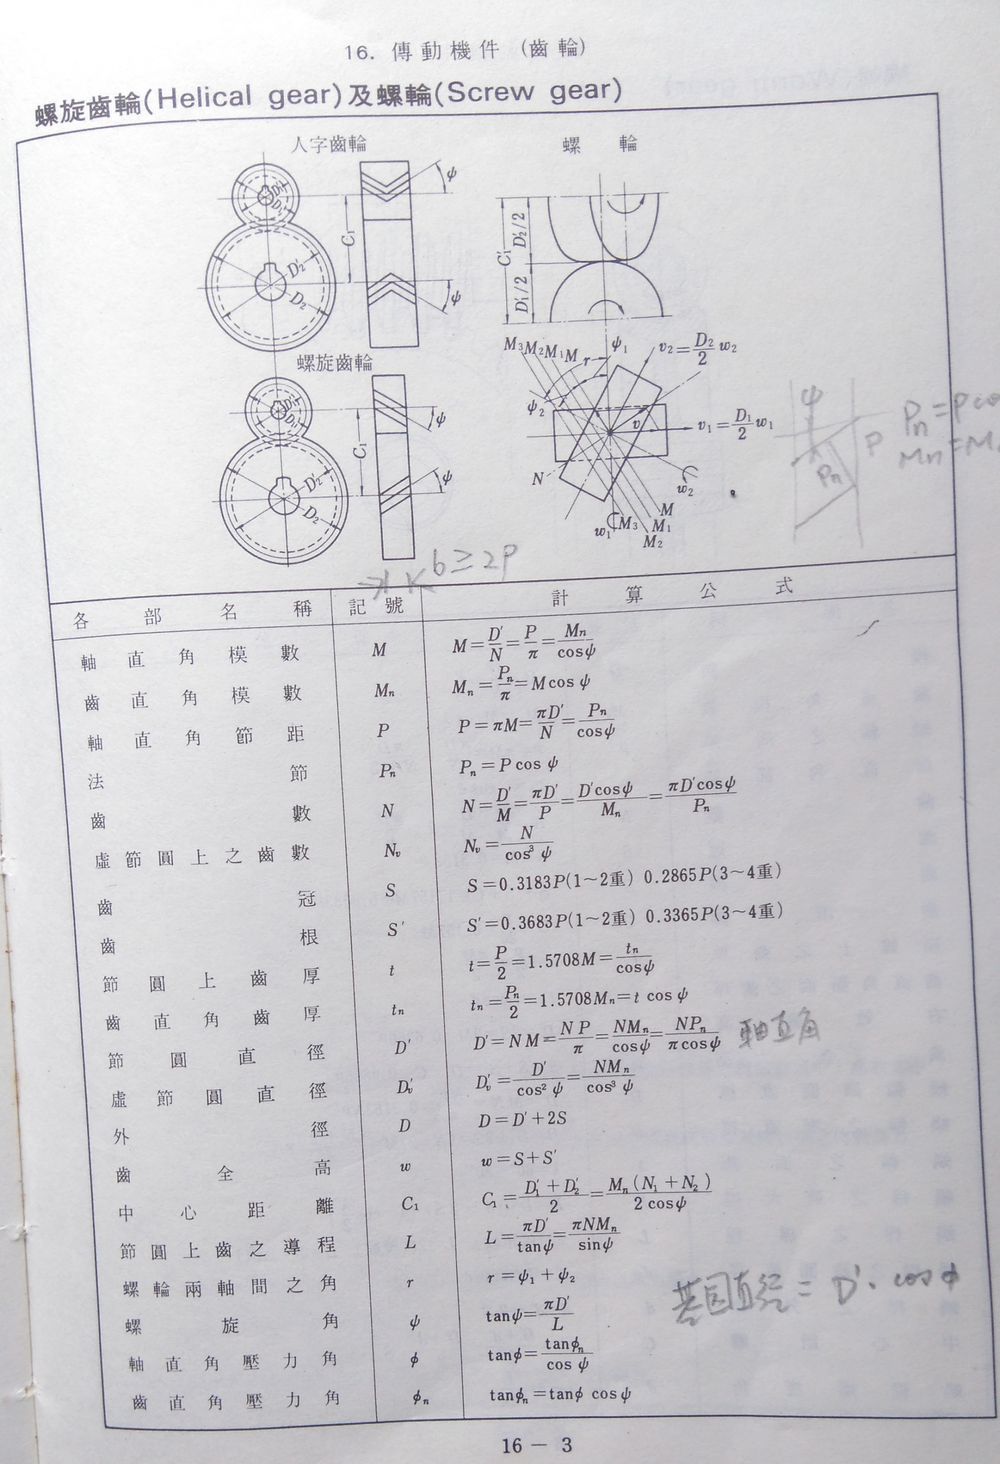 16. 傳動機件 (齒輪)
螺旋齒輪(Helical gear)及螺輪(Screw gear)
人字齒輪 螺 輪
ψ
C₁
D'₂
D₂
ψ
C'₁ D'₂/2
D'₁/2
螺旋齒輪
M₃ M₂ M₁ M r ψ₁ v₂=D₂/2 w₂
ψ₂
v v₁=D₁/2 w₁
N
w₂
w₁ M₃ M₂ M₁ M
C₁
ψ
D'₂
D₂
ψ
ψ
Pn P
Pn=P
Mn=M
b≥2P
各部名稱 記號 計算公式
軸直角模數 M M=D'/N=P/π=Mn/cosψ
齒直角模數 Mn Mn=Pn/π=M cos ψ
軸直角節距 P P=πM=πD'/N=Pn/cosψ
法節 Pn Pn=P cos ψ
齒數 N N=D'/M=πD'/P=D'cosψ/Mn=πD'cosψ/Pn
虛節圓上之齒數 Nv Nv=N/cos³ ψ
齒冠 S S=0.3183P(1～2重) 0.2865P(3～4重)
齒根 S' S'=0.3683P(1～2重) 0.3365P(3～4重)
節圓上齒厚 t t=P/2=1.5708M=tn/cosψ
齒直角齒厚 tn tn=Pn/2=1.5708Mn=t cos ψ
節圓直徑 D' D'=NM=NP/π=NMn/cosψ=NPn/πcosψ 軸直角
虛節圓直徑 D'v D'v=D'/cos² ψ=NMn/cos³ ψ
外徑 D D=D'+2S
齒全高 w w=S+S'
中心距離 C₁ C₁=D'₁+D'₂/2=Mn(N₁+N₂)/2 cosψ
節圓上齒之導程 L L=πD'/tanψ=πNMn/sinψ
螺輪兩軸間之角 r r=ψ₁+ψ₂
基圆直径=D'·cosφ
螺旋角 ψ tanψ=πD'/L
軸直角壓力角 φ tanφ=tanφn/cos ψ
齒直角壓力角 φn tanφn=tanφ cosψ
16－3